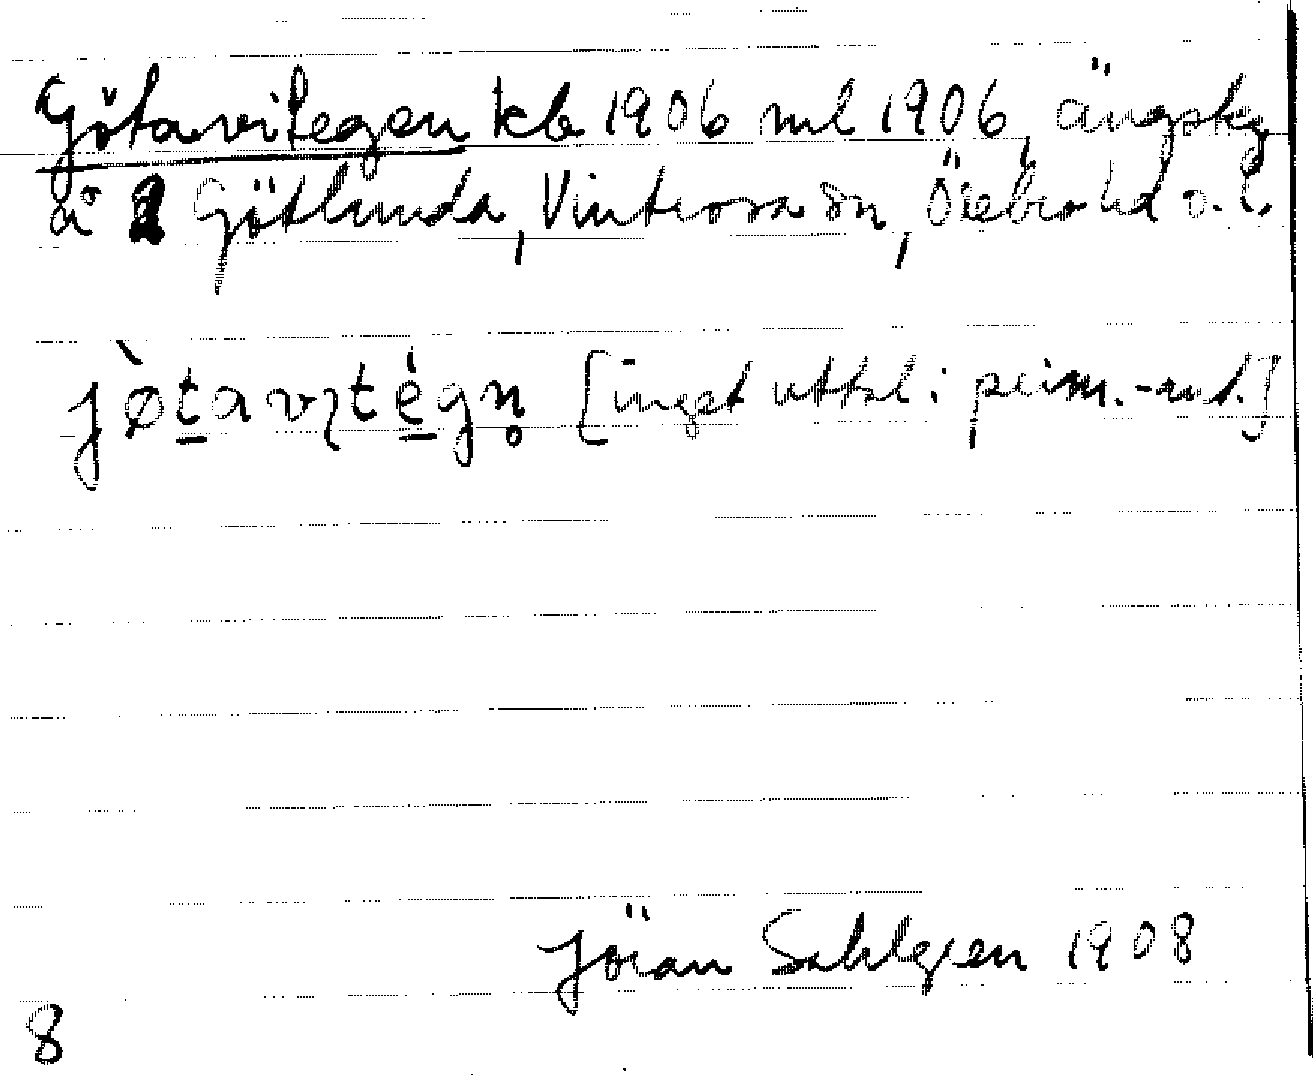 Götavitegen kb 1906 ml 1906, ängskg
å 2 Götlunda, Vintrosa sn, Örebro hd o. l.
jø̀tavɪtégn̥ [inget uttal i prim.-uat.]
Jöran Sahlgren 1908
8